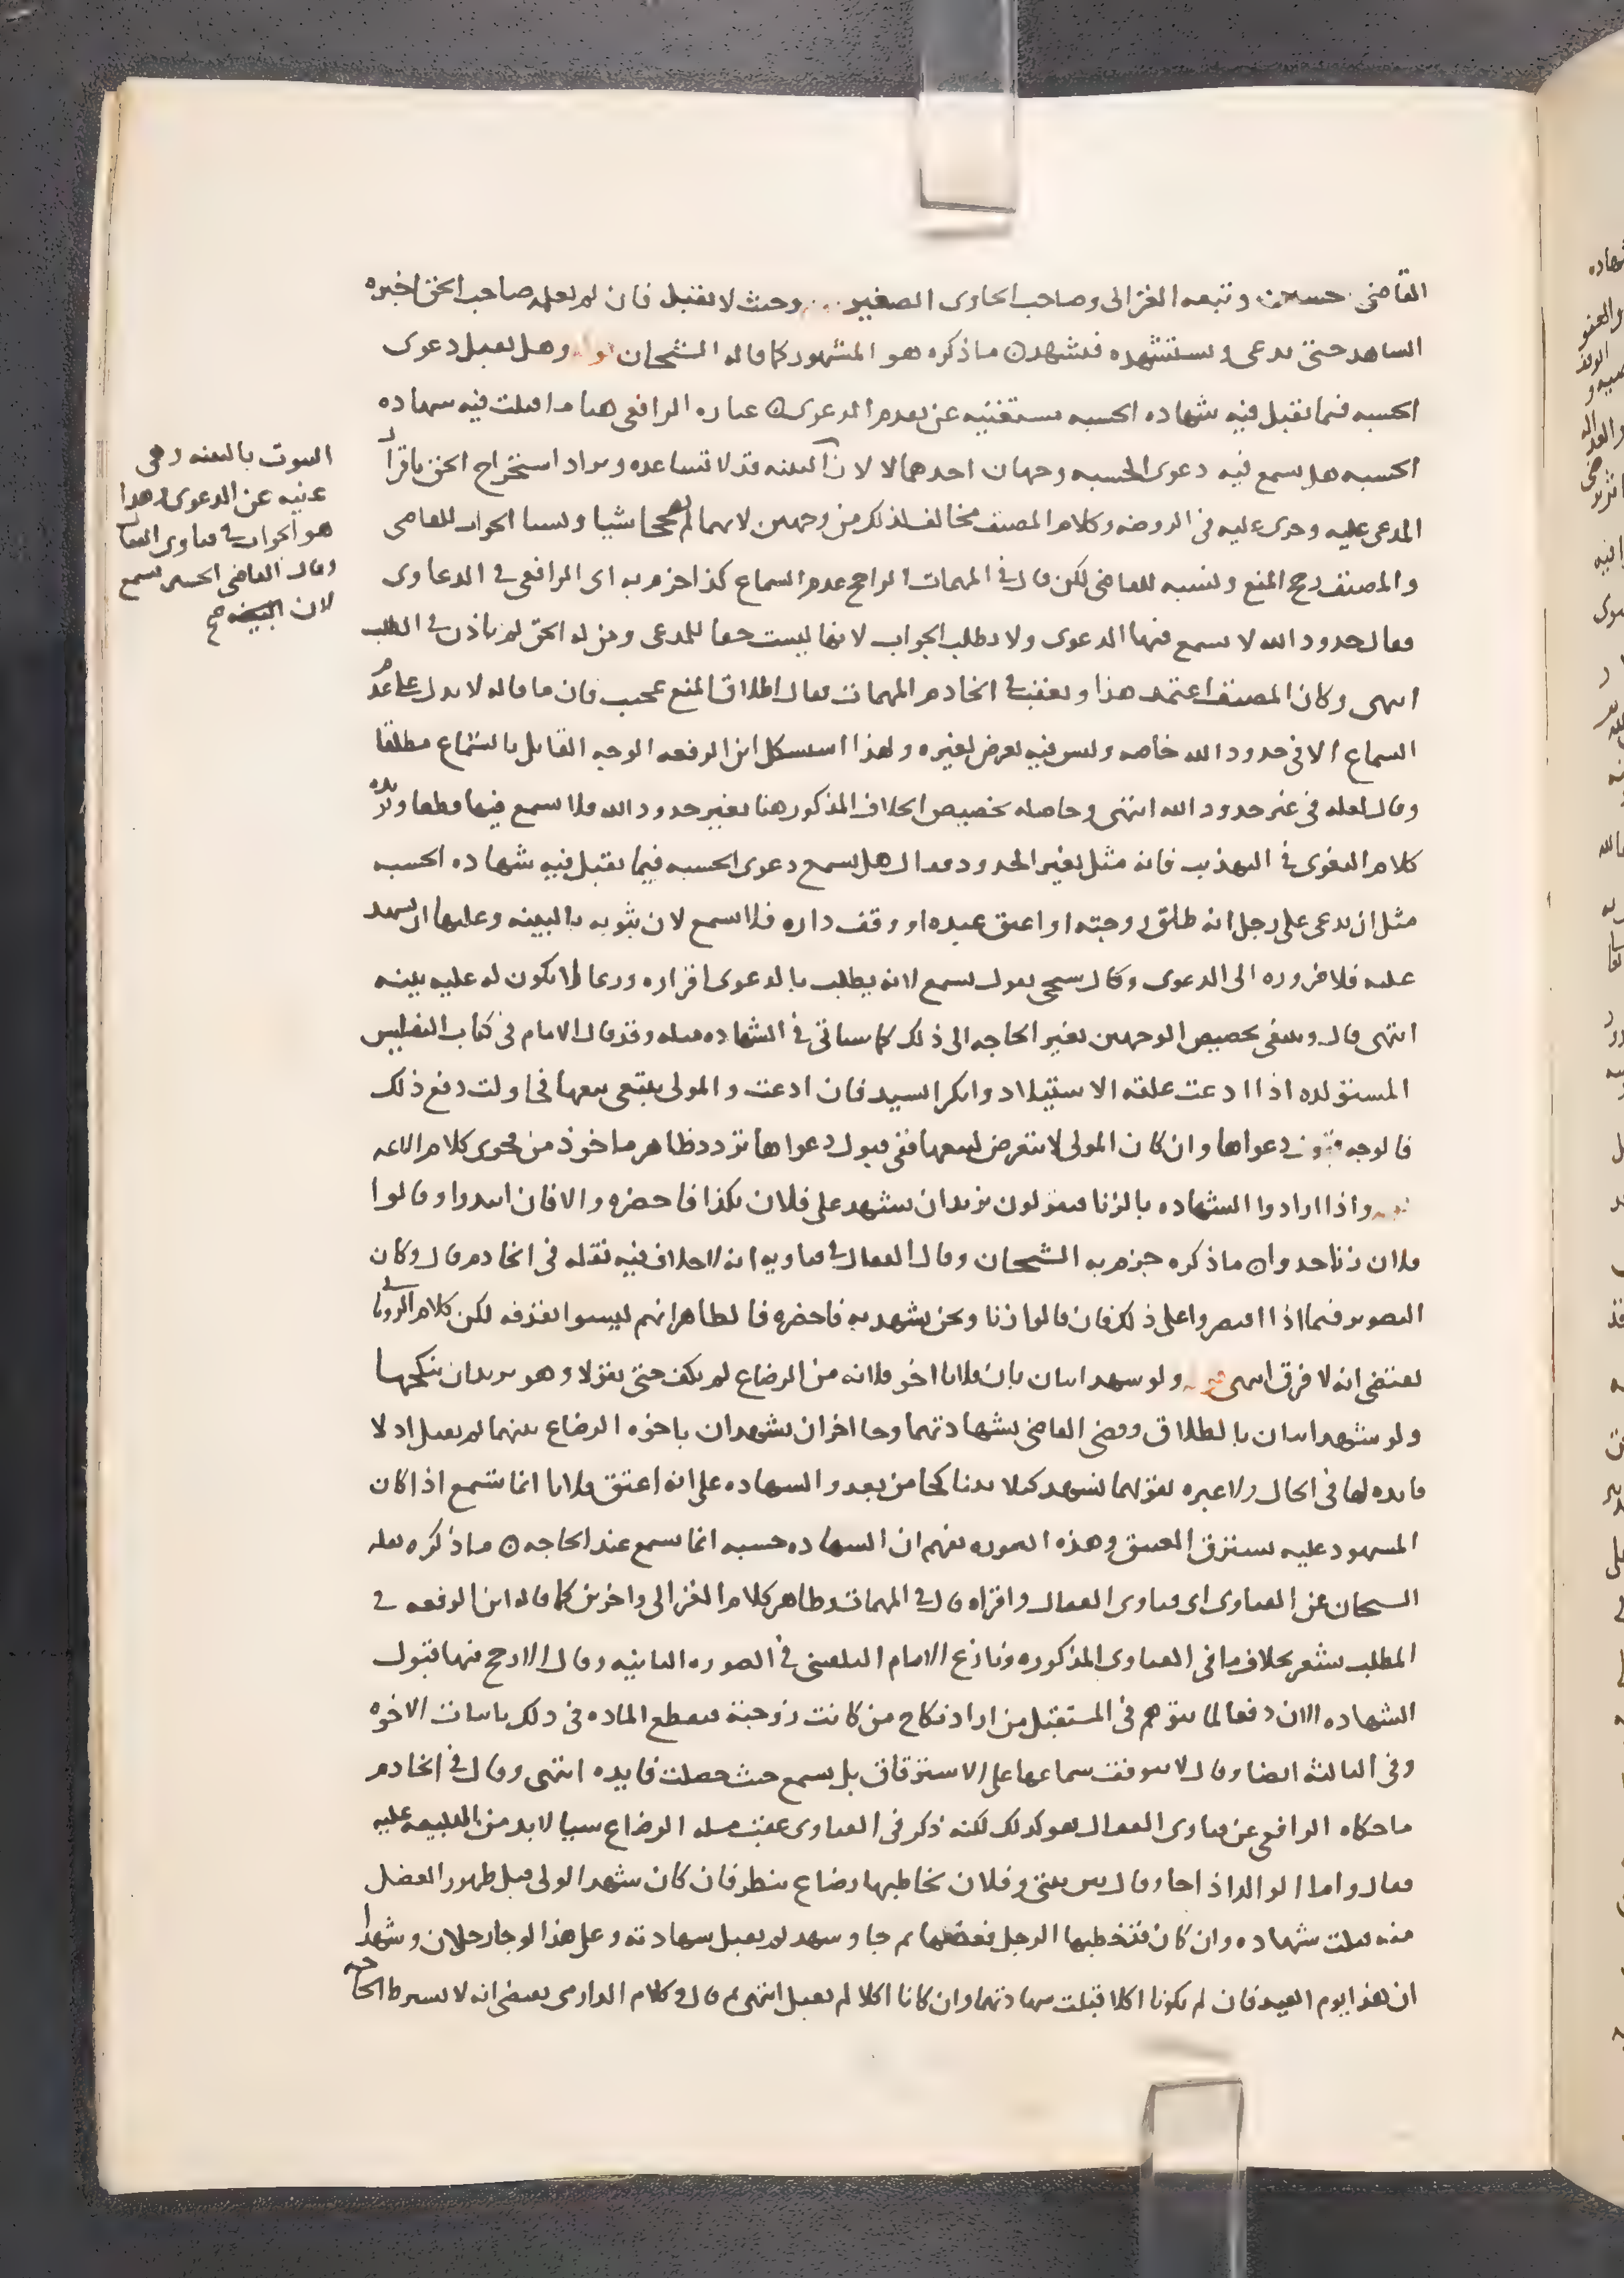 القاضي حسين وتبعه الغزالي وصاحب الحاوي الصغير وحيث لا تقبل فان لم يعلم صاحب الحق اخبره
الشاهد حتى يدعي ويستشهده فيشهد ما ذكره هو المشهور كما قاله الشيخان قوله وهل يقبل دعوى
الحسبه فيما تقبل فيه شهاده الحسبه مستغنيه عن تقدم الدعوى عباره الرافعي هنا ما قبلت فيه شهاده
الحسبه هل يسمع فيه دعوى الحسبه وجهان احدهما لا لان البينه قد لا تساعده ويراد استخراج الحق باقرار
المدعى عليه وجرى عليه في الروضه وكلام المصنف مخالف لذلك من وجهين لانهما لم يصححا شيا ونسبا الجواب للقاضي
والمصنف رجح المنع ونسبه للقاضي لكن قال في المهمات الراجح عدم السماع كذا جزم به اي الرافعي في الدعاوى
فقال حدود الله لا يسمع فيها الدعوى ولا يطلب الجواب لانها ليست حقا للمدعي ومن له الحق لم ياذن في الطلب
انتهى وكان المصنف اعتمد هذا وتعقب في الخادم المهمات فقال اطلاق المنع عجيب فان ما قاله لا يدل على عدم
السماع الا في حدود الله خاصه وليس فيه تعرض لغيره ولهذا استشكل ابن الرفعه الوجه القايل بالسماع مطلقا
وقال لعله في غير حدود الله انتهى وحاصله تخصيص الخلاف المذكور هنا بغير حدود الله فلا يسمع فيها قطعا ويريده
كلام البغوي في التهذيب فانه مثل بغير الحدود فقال هل يسمع دعوى الحسبه فيما يقبل فيه شهاده الحسبه
مثل ان يدعي على رجل انه طلق زوجته او اعتق عبده او وقف داره فلا يسمع لان ثبوته بالبينه وعليها ان يشهد
عليه فلا ضروره الى الدعوى وكان شيخي يقول يسمع لانه يطلب بالدعوى اقراره وربما لا يكون له عليه بينه
انتهى قال وينبغي تخصيص الوجهين بغير الحاجه الى ذلك كما سياتي في الشهاده مثله وقد قال الامام في كتاب التفليس
المستولده اذا ادعت علقه الاستيلاد وانكر السيد فان ادعت والمولى يبتغي بيعها فحاولت دفع ذلك
فالوجه قبول دعواها وان كان المولى لا يتعرض لبيعها ففي قبول دعواها تردد ظاهر ماخوذ من فحوى كلام الايمه
واذا ارادوا الشهاده بالزنا فيقولون نريد ان نشهد على فلان بكذا فاحضره والا فان ابتدوا وقالوا
فلان زنا حدوا ما ذكره جزم به الشيخان وقال القفال في فتاويه انه لا خلاف فيه نقله في الخادم قال وكان
التصوير فيما اذا اقتصروا على ذلك فان قالوا زنا ونحن نشهد به فاحضره فالظاهر انهم ليسوا بقذفه لكن كلام الروياني
يقتضي انه لا فرق انتهى ولو شهد اثنان بان فلانا اخو فلانه من الرضاع لم يكف حتى يقولا وهو يريد ان ينكحها
ولو شهد اثنان بالطلاق وقضى القاضي بشهادتهما وجا اخران يشهدان باخوه الرضاع بينهما لم يقبل اذ لا
فايده لها في الحال ولا عبره بقولهما نشهد كيلا يتناكحا من بعد والشهاده على انه اعتق فلانا انما تسمع اذا كان
المشهود عليه يسترق العتيق وهذه الصوره تفهم ان الشهاده حسبه انما تسمع عند الحاجه ما ذكره نقله
الشيخان عن الفتاوى اي فتاوى القفال واقراه قال في المهمات وظاهر كلام الغزالي واخرين كما قاله ابن الرفعه في
المطلب يشعر بخلاف ما في الفتاوى المذكوره ونازع الامام البلقيني في الصوره الثانيه وقال الارجح فيها قبول
الشهاده الان دفعا لما يتوهم في المستقبل من اراد نكاح من كانت زوجته فيقطع الماده في ذلك باثبات الاخوه
وفي الثالثه ايضا وقال لا يتوقف سماعها على الاسترقاق بل يسمع حيث حصلت فايده انتهى وقال في الخادم
ما حكاه الرافعي عن فتاوى القفال هو كذلك لكنه ذكر في الفتاوى عقب مسله الرضاع شيا لابد من التنبيه عليه
فقال واما الوالد اذا جا وقال بين بنتي وفلان يخاطبها رضاع ينظر فان كان شهد الولي قبل ظهور العضل
منه قبلت شهاده وان كان فتخطبها الرجل فعضلها ثم جا وشهد لم يقبل شهادته وعلى هذا لو جا رجلان وشهدا
ان هذا يوم العيد فان لم يكونا اكلا قبلت شهادتهما وان كانا اكلا لم يقبل انتهى ثم قال وكلام الدارمي يقتضي انه لا يشترط الحاجه
الثبوت بالبينه وهي
غنيه عن الدعوى وهذا
هو الجواب في فتاوى القفال
وقال القاضي الحسين تسمع
لان البينه صح